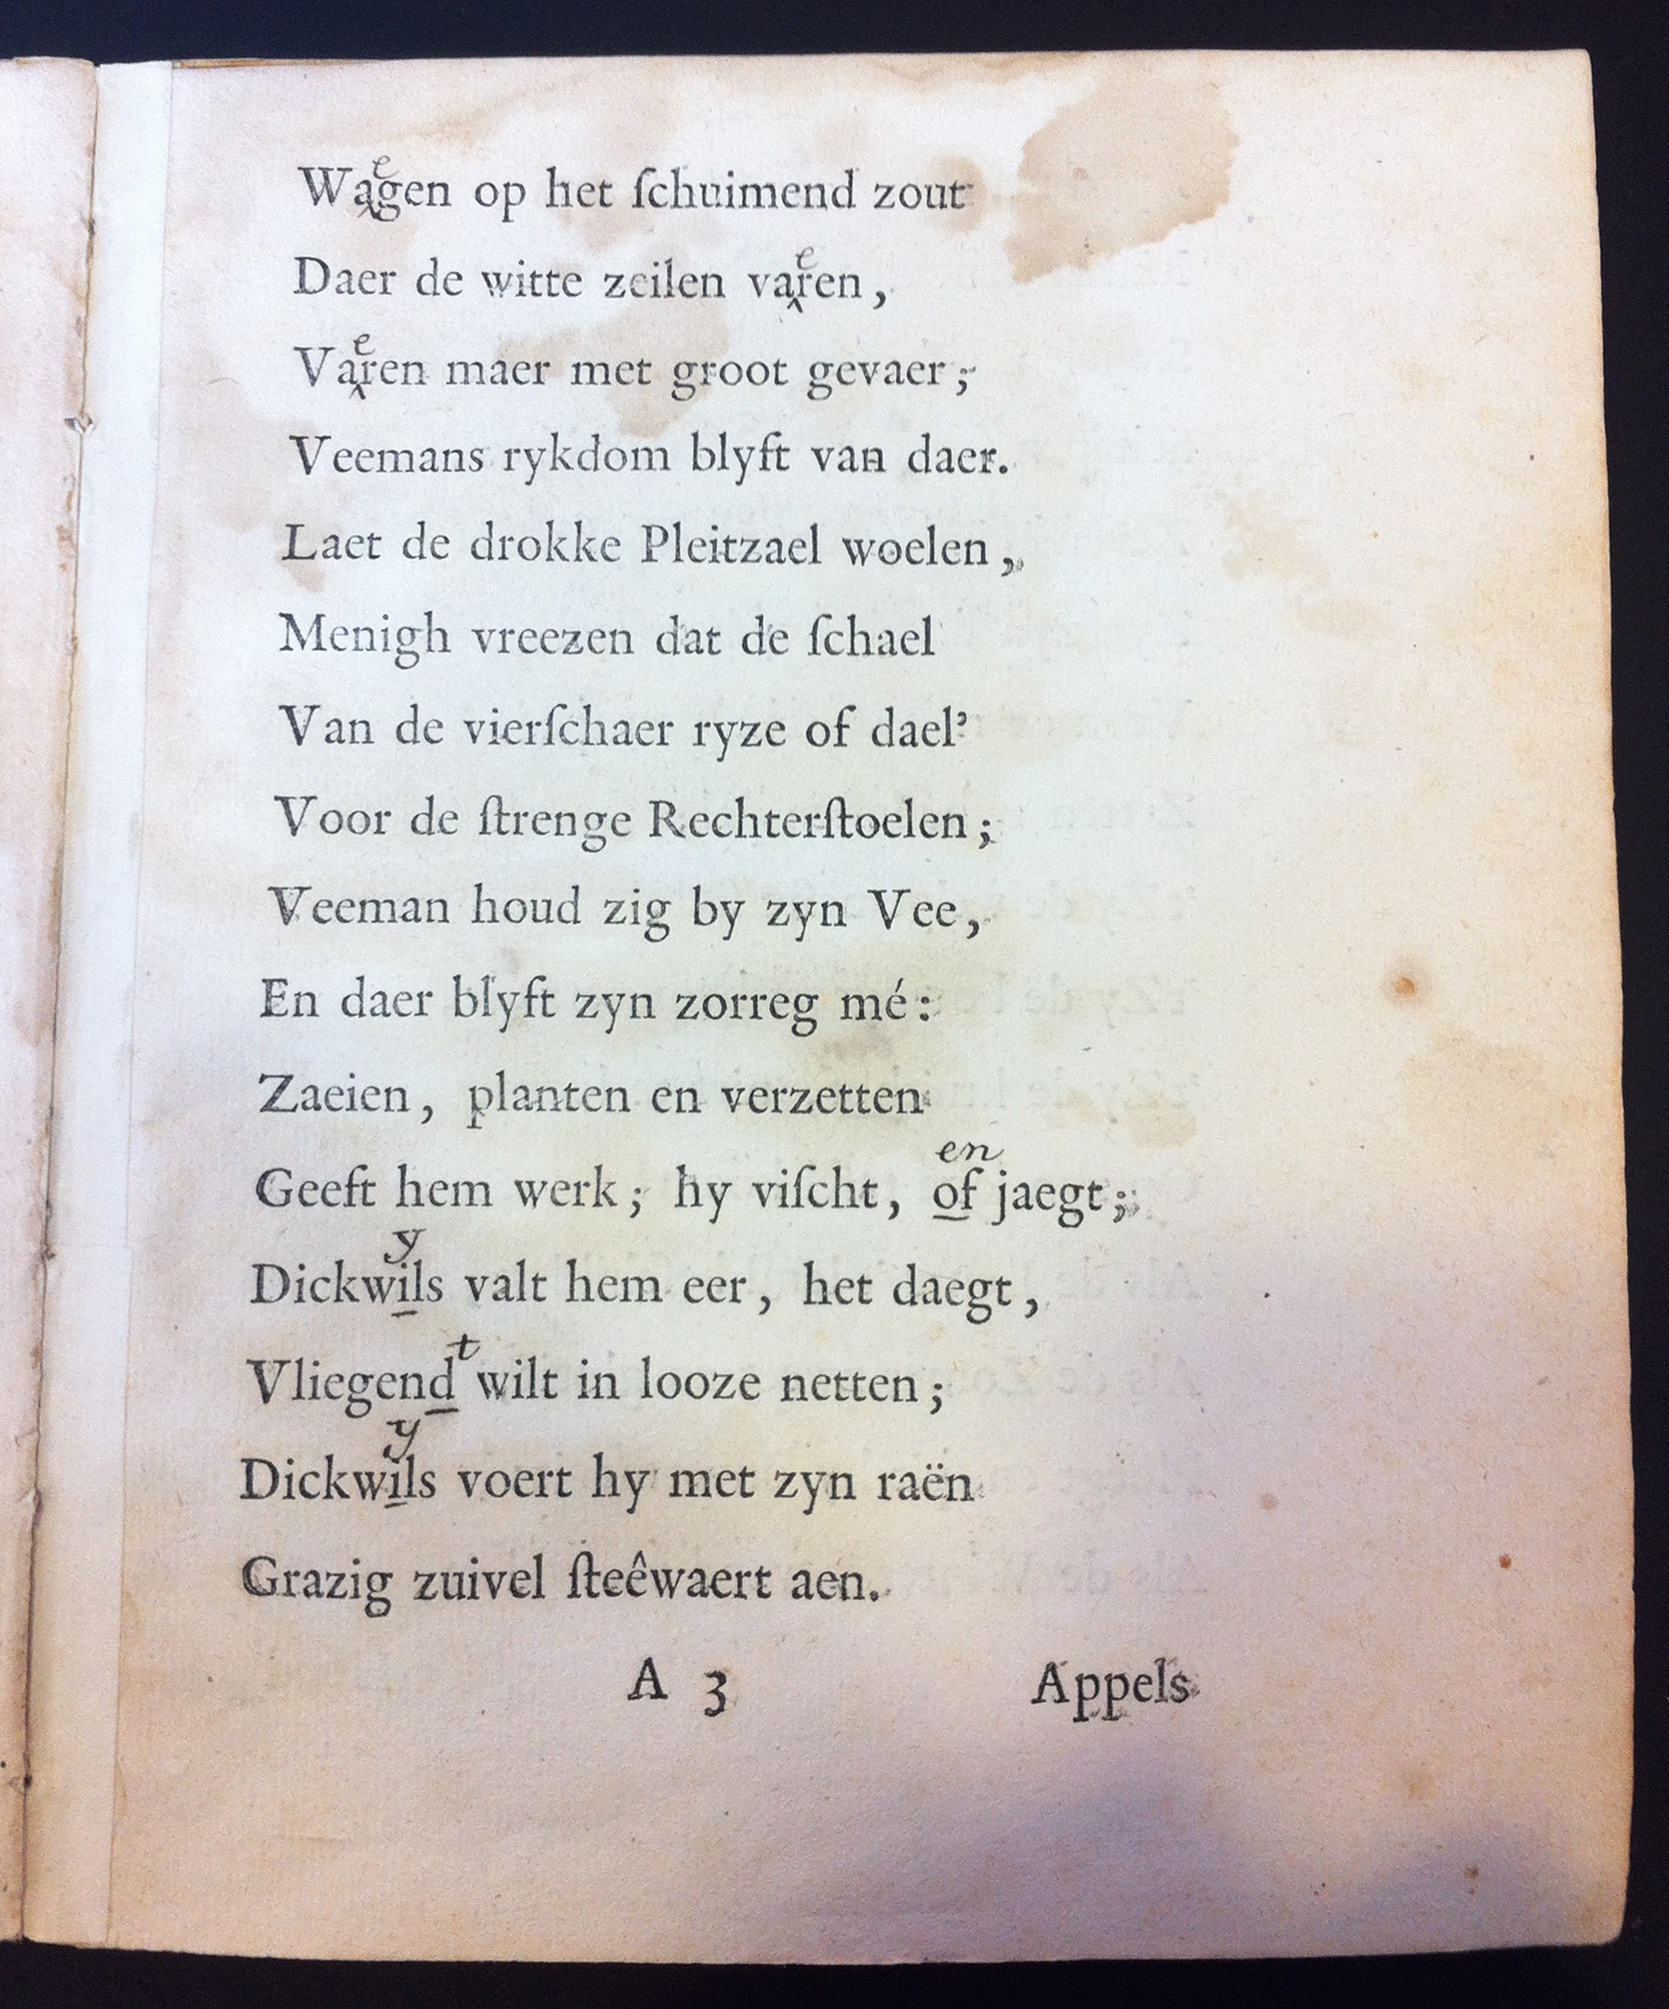 e
Wagen op het ſchuimend zout
e
Daer de witte zeilen varen,
e
Varen maer met groot gevaer;
Veemans rykdom blyft van daer.
Laet de drokke Pleitzael woelen,
Menigh vreezen dat de ſchael
Van de vierſchaer ryze of dael'
Voor de ſtrenge Rechterſtoelen;
Veeman houd zig by zyn Vee,
En daer blyft zyn zorreg mé:
Zaeien, planten en verzetten
en
Geeft hem werk; hy viſcht, of jaegt;
y
Dickwils valt hem eer, het daegt,
t
Vliegend wilt in looze netten;
y
Dickwils voert hy met zyn raën
Grazig zuivel ſteêwaert aen.
A 3 Appels